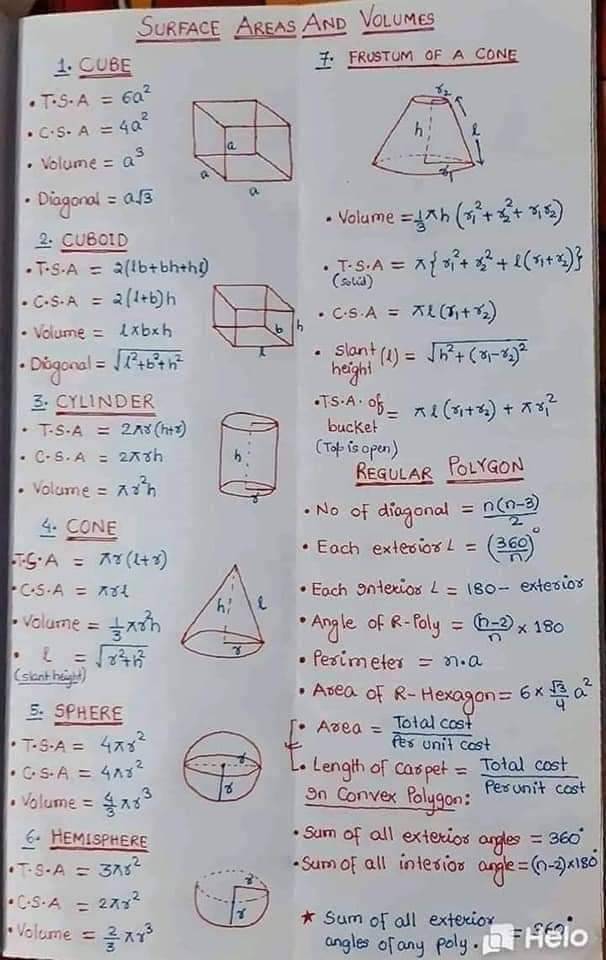 SURFACE AREAS AND VOLUMES
1. CUBE
• T.S.A = 6a²
• C.S.A = 4a²
• Volume = a³
• Diagonal = a√3
a
a
a
2. CUBOID
• T.S.A = 2(lb+bh+hl)
• C.S.A = 2(l+b)h
• Volume = l×b×h
• Diagonal = √(l²+b²+h²)
b
h
l
3. CYLINDER
• T.S.A = 2πr(h+r)
• C.S.A = 2πrh
• Volume = πr²h
h
r
4. CONE
T.S.A = πr(l+r)
• C.S.A = πrl
• Volume = 1/3 πr²h
• l = √(r²+h²)
(slant height)
h
l
r
5. SPHERE
• T.S.A = 4πr²
• C.S.A = 4πr²
• Volume = 4/3 πr³
r
r
6. HEMISPHERE
• T.S.A = 3πr²
• C.S.A = 2πr²
• Volume = 2/3 πr³
r
r
7. FRUSTUM OF A CONE
r₂
h
l
r₁
• Volume = 1/3 πh (r₁²+r₂²+r₁r₂)
• T.S.A = π{r₁²+r₂²+l(r₁+r₂)}
(solid)
• C.S.A = πl(r₁+r₂)
• slant height (l) = √(h²+(r₁-r₂)²)
• T.S.A. of bucket = πl(r₁+r₂) + πr₁²
(Top is open)
REGULAR POLYGON
• No of diagonal = n(n-3)/2
• Each exterior L = (360/n)°
• Each Interior L = 180- exterior
• Angle of R-Poly = (n-2)/n × 180
• Perimeter = n.a
• Area of R-Hexagon = 6 × √3/4 a²
• Area = Total cost/Per unit cost
• Length of carpet = Total cost/Per unit cost
In Convex Polygon:
• Sum of all exterior angles = 360°
• Sum of all interior angle = (n-2)×180°
★ Sum of all exterior
angles of any poly. = 360°
Helo